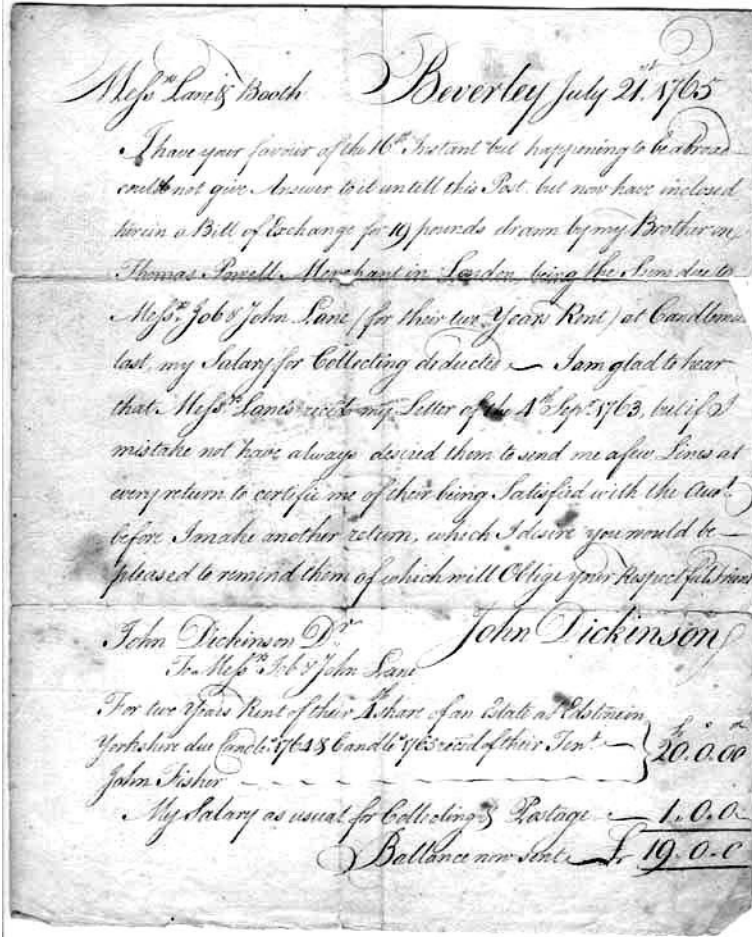 Messrs Lane & Booth Beverley July 21st 1765
I have your favour of the 16th Instant but happening to be abroad
could not give Answer to it untill this Post, but now have inclosed
herein a Bill of Exchange for 19 pounds drawn by my Brother on
Thomas Powell Merchant in London, being the Sum due to
Messrs Job & John Lane (for their two Years Rent) at Candlemas
last, my Salary for Collecting deducted, — I am glad to hear
that Messrs Lane's recd my Letter of the 4th Sepr 1763, but if I
mistake not have always desired them to send me a few Lines at
every return to certifie me of their being Satisfied with the Acct.
before I make another return, which I desire you would be —
pleased to remind them of which will Oblige your Respectful Friend
John Dickinson
John Dickinson Dr
To Messrs Job & John Lane
For two Years Rent of their 4th share of an Estate at in
Yorkshire due Candls 1764 & Candls 1765 reced of their Tent —
John Fisher — 20.0.00
My Salary as usual for Collecting & Postage — 1.0.0
Ballance now sent — £ 19.0.0